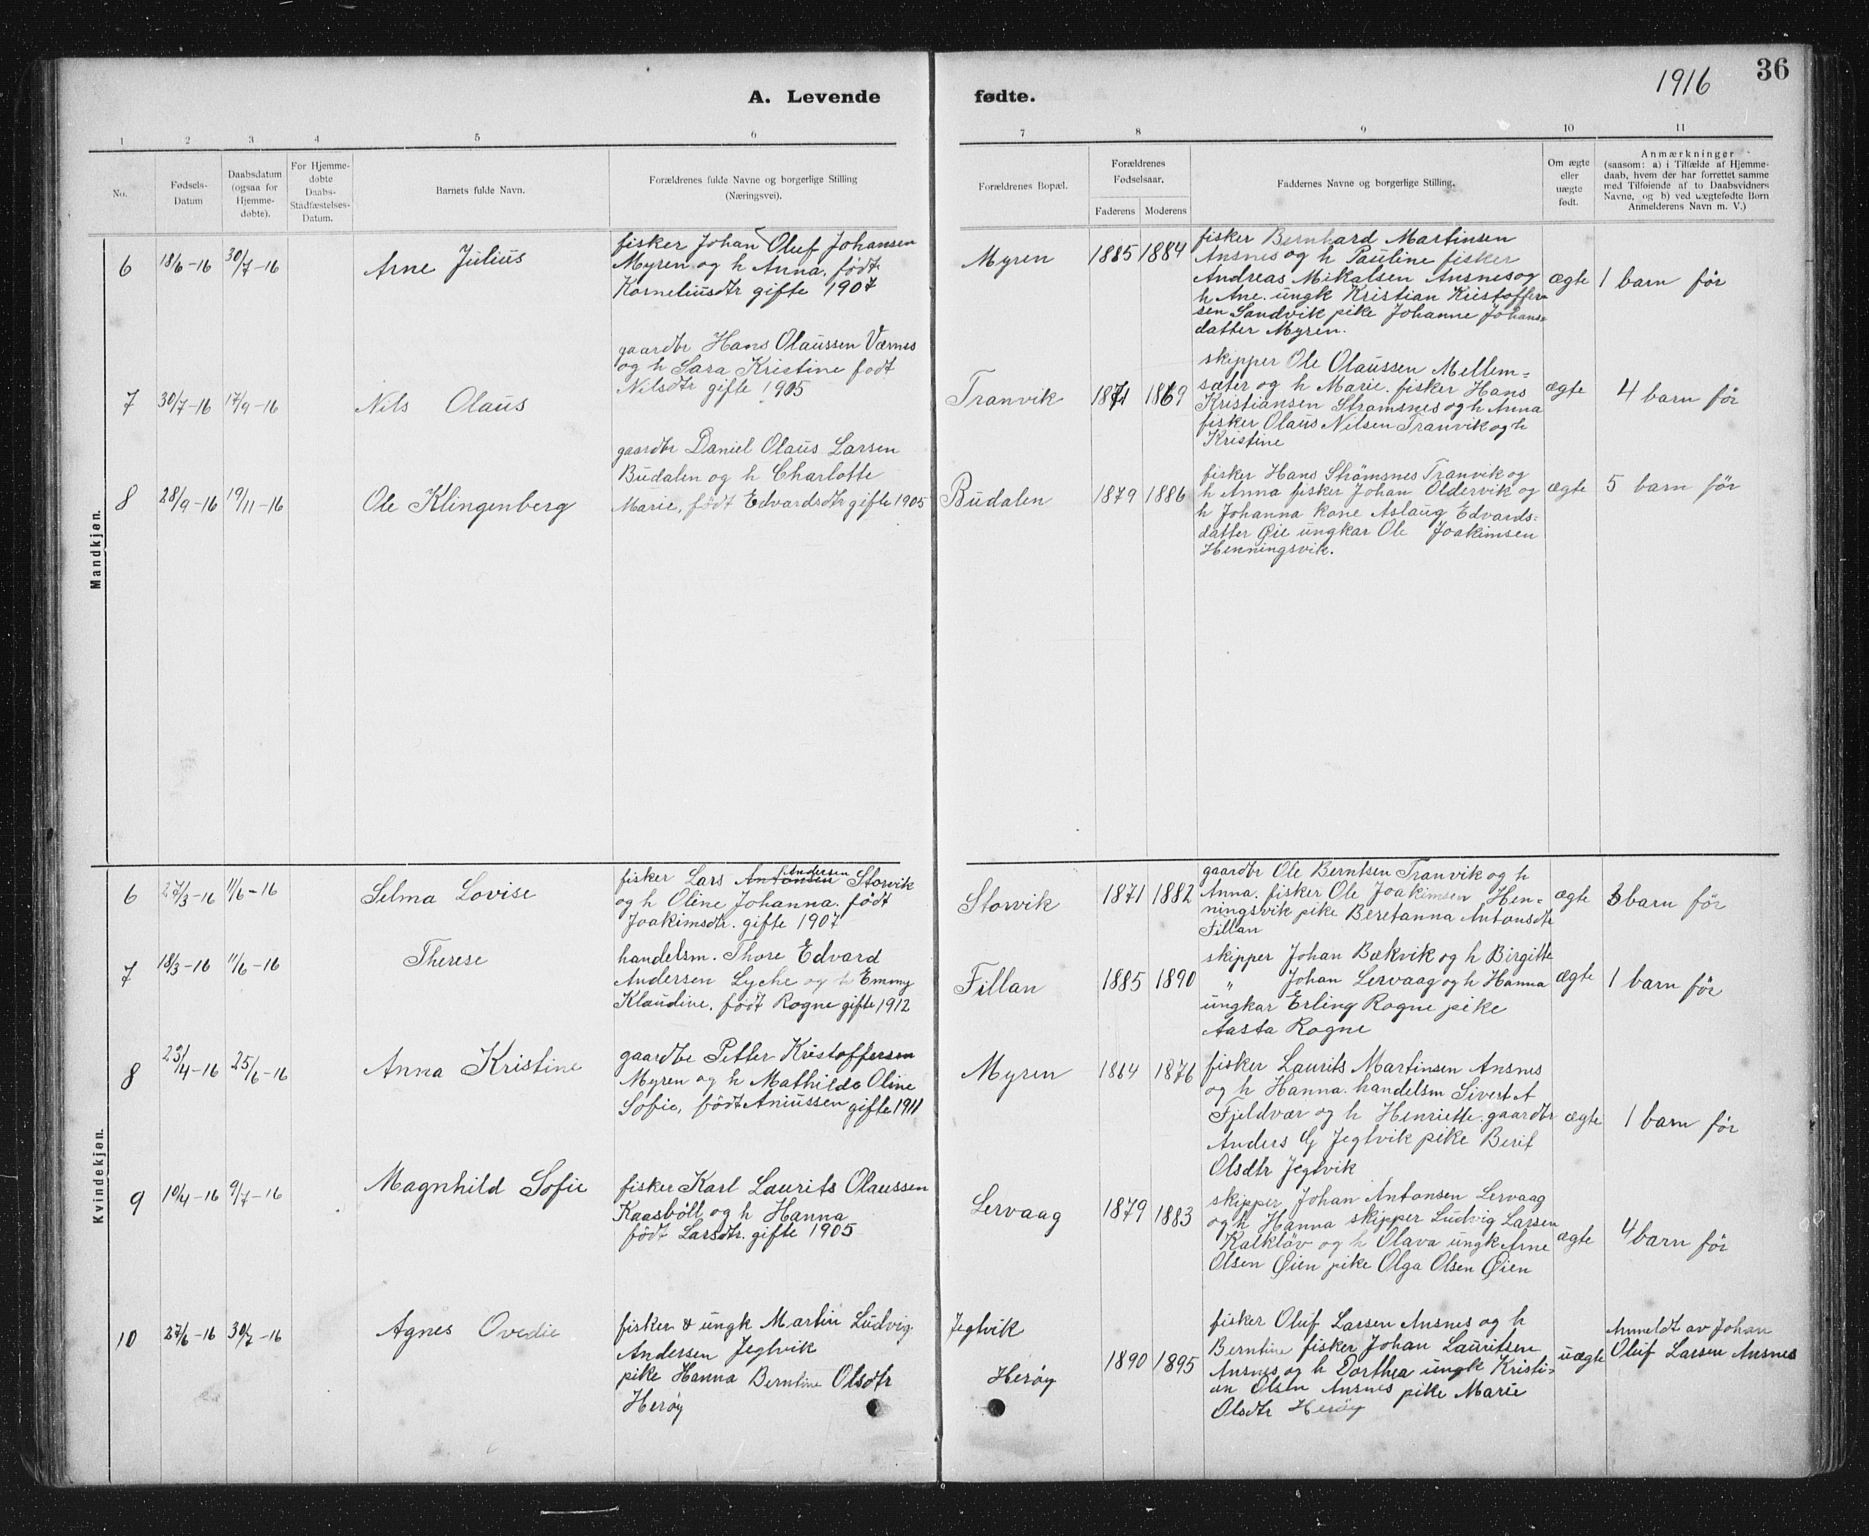 1916
36
A. Levende fødte.
1 2 3 4 5 6 7 8 9 10 11
No.
Fødsels-
Datum
Daabsdatum
(ogsaa for
Hjemme-
døbte).
For Hjemme-
døbte
Daabs-
Stadfæstelses-
Datum.
Barnets fulde Navn.
Forældrenes fulde Navne og borgerlige Stilling
(Næringsvei).
Forældrenes Bopæl.
Forældrenes
Fødselsaar.
Faderens Moderens
Faddernes Navne og borgerlige Stilling.
Om ægte
eller
uægte
født.
Anmærkninger
(saasom: a) i Tilfælde af Hjemme-
daab, hvem der har forrettet samme
med Tilføiende af to Daabsvidners
Navne, og b) ved uægtefødte Børn
Anmelderens Navn m. V.)
Mandkjøn.
6 18/6-16 30/7-16 Arne Julius
fisker Johan Oluf Johansen
Myren og h Anna, født
Korneliusdtr gifte 1907
Myren 1885 1884
fisker Bernhard Martinsen
Ansnes og h Pauline fisker
Andreas Mikalsen Ansnes og
h Ane. ungk Kristian Kristoffer-
sen Sandvik pike Johanne Johans-
datter Myren.
ægte 1 barn før
7 30/7-16 17/9-16 Nils Olaus
gaardbr Hans Olaussen Værnes
og h Sara Kristine født
Nilsdtr gifte 1905
Tranvik 1871 1869
skipper Ole Olaussen Mellem-
sæter og h Marie. fisker Hans
Kristiansen Strømsnes og h Anna
fisker Olaus Nilsen Tranvik og h
Kristine
ægte 4 barn før
8 28/9-16 19/11-16 Ole Klingenberg
gaardbr Daniel Olaus Larsen
Budalen og h Charlotte
Marie, født Edvardsdtr gifte 1905
Budalen 1879 1886
fisker Hans Strømsnes Tranvik og
h Anna fisker Johan Oldervik og
h Johanna kone Aslaug Edvards-
datter Øie ungkar Ole Joakimsen
Henningsvik.
ægte 5 barn før
Kvindekjøn.
6 27/3-16 11/6-16 Selma Lovise
fisker Lars Antonsen Andersen Storvik
og h Oline Johanna. født
Joakimsdtr. gifte 1907
Storvik 1871 1882
gaardbr Ole Berntsen Tranvik og h
Anna. fisker Ole Joakimsen Hen-
ningsvik pike Beretanna Antonsdtr
Fillan
ægte 3 barn før
7 18/3-16 11/6-16 Therese
handelsm. Thore Edvard
Andersen Lyche og h Emmy
Klaudine. født Rogne gifte 1912
Fillan 1885 1890
skipper Johan Bækvik og h Birgitte
" Johan Lervaag og h Hanna
ungkar Erling Rogne pike
Aasta Rogne
ægte 1 barn før
8 23/4-16 25/6-16 Anna Kristine
gaardbr Petter Kristoffersen
Myren og h Mathilde Oline
Sofie, født Aniussen gifte 1911
Myren 1864 1876
fisker Laurits Martinsen Ansnes
og h Hanna. handelsm Sivert A
Fjeldvær og h Henriette. gaardbr
Anders G Jegtvik pike Berit
Olsdtr Jegtvik
ægte 1 barn før
9 10/4-16 9/7-16 Magnhild Sofie
fisker Karl Laurits Olaussen
Kaasböll og h Hanna
født Larsdtr. gifte 1905
Lervaag 1879 1883
skipper Johan Antonsen Lervaag
og h Hanna skipper Ludvig Larsen
Kalkløv og h Olava ungk Arne
Olsen Øien pike Olga Olsen Øien
ægte 4 barn før
10 27/6-16 30/7-16 Agnes Ovedie
fisker & ungk Martin Ludvig
Andersen Jegtvik
pike Hanna Berntine Olsdtr
Herøy
Jegtvik
Herøy
1890 1895
fisker Oluf Larsen Ansnes og h
Berntine fisker Johan Lauritsen
Ansnes og h Dorthea ungk Kristi-
an Olsen Ansnes pike Marie
Olsdtr Herøy
uægte
Anmeldt av Johan
Oluf Larsen Ansnes